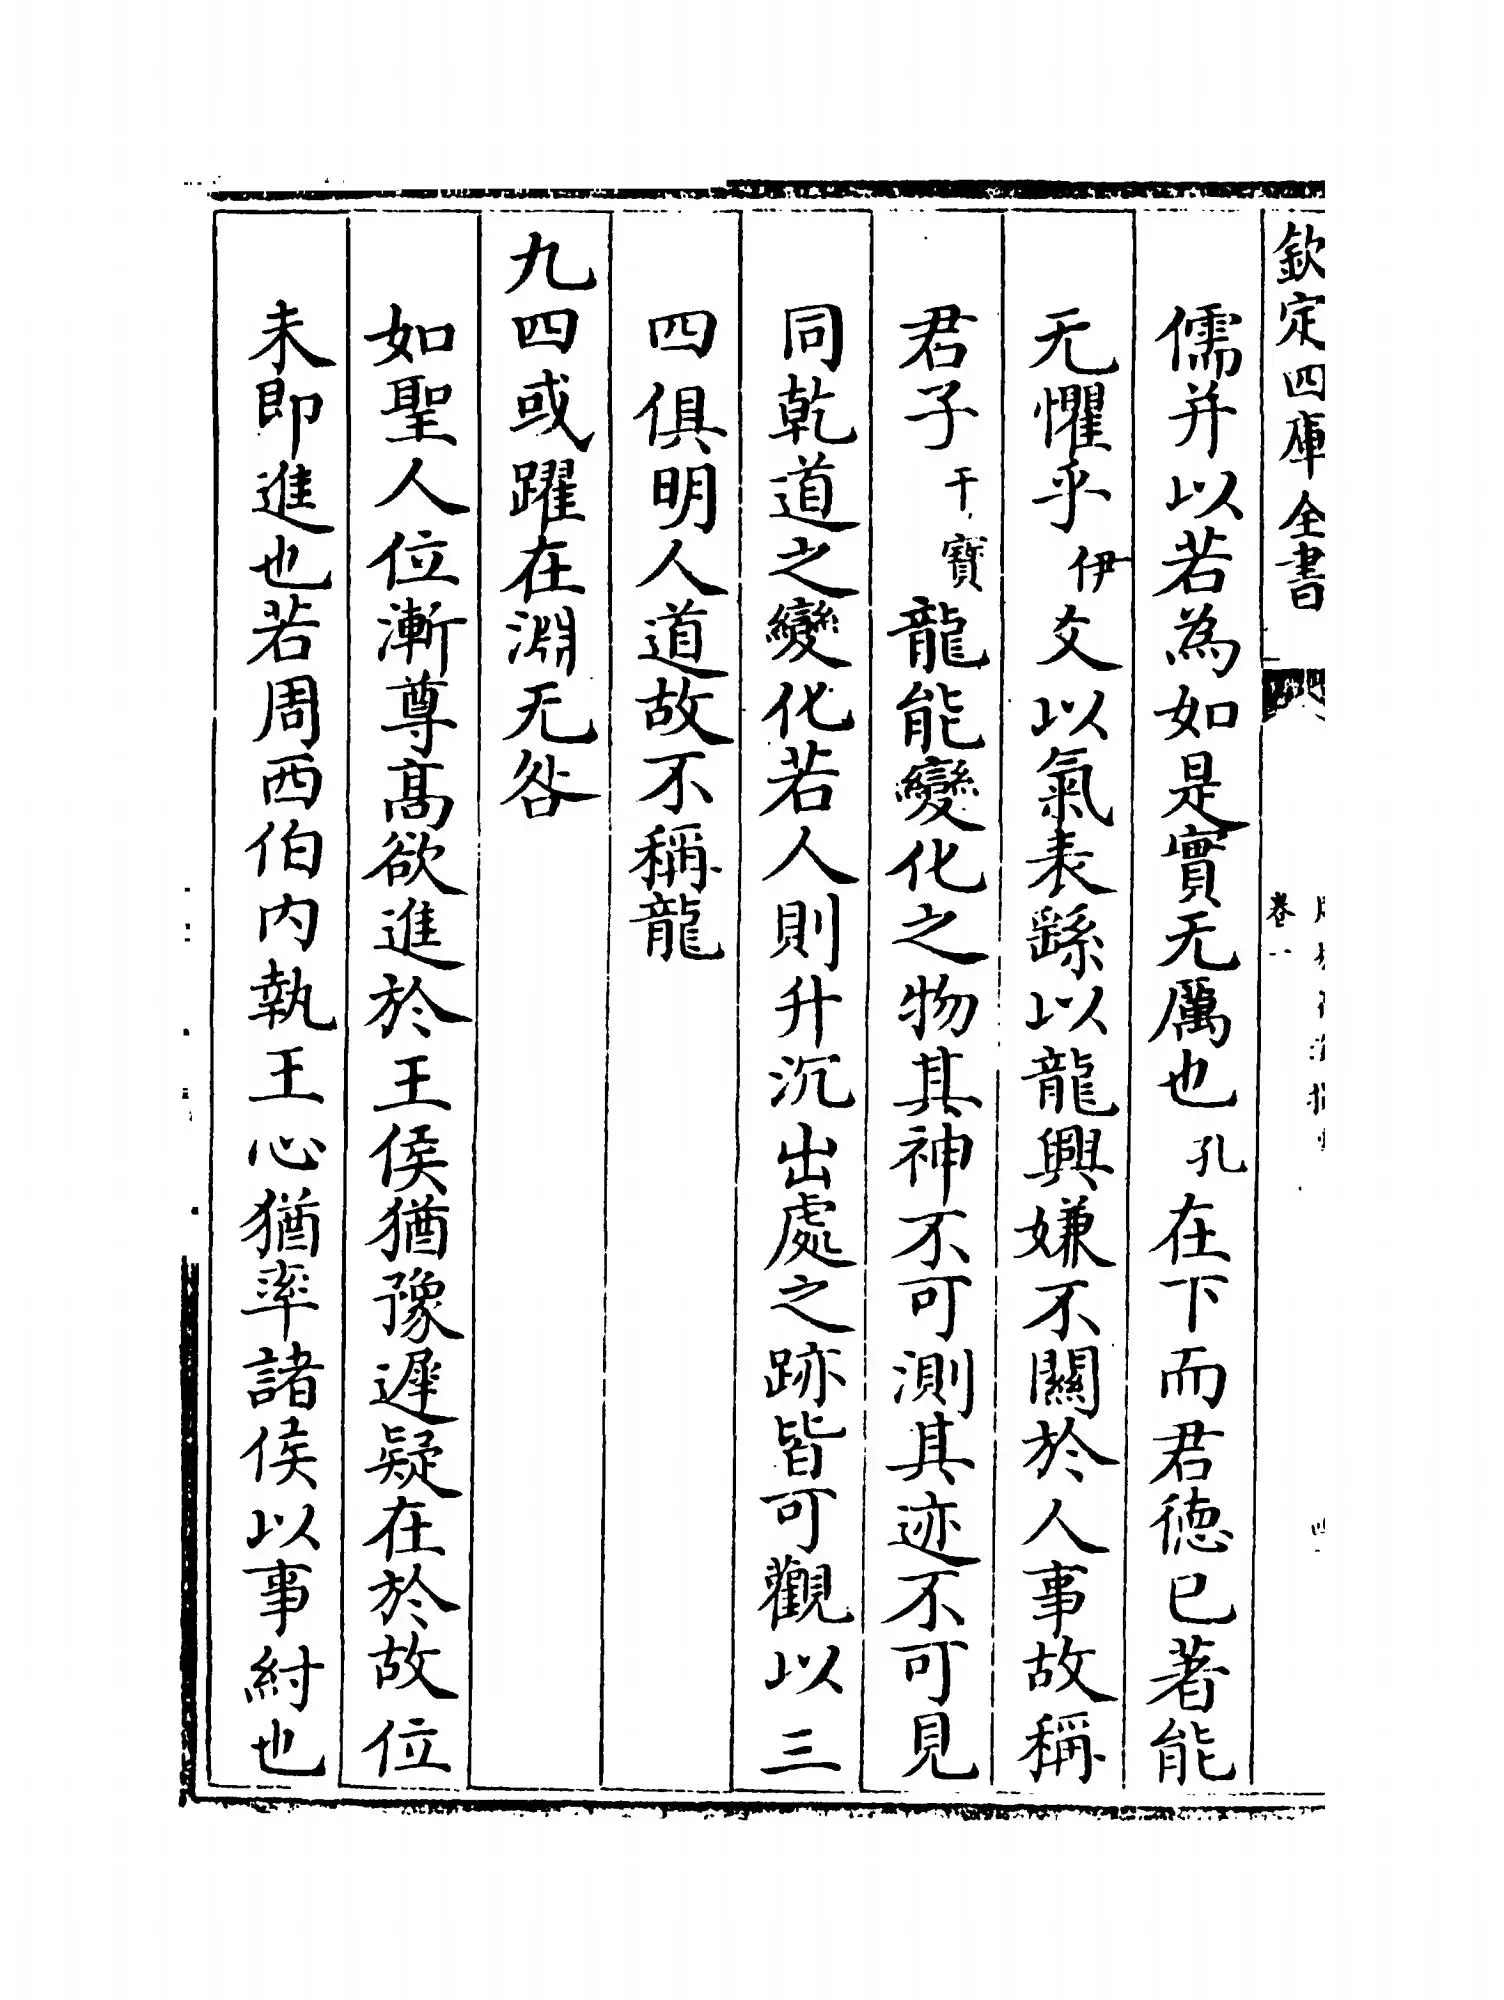 欽定四庫全書
卷一
儒并以若為如是實无厲也孔在下而君徳已著能
无懼乎伊爻以氣表繇以龍興嫌不關於人事故稱
君子干寶龍能變化之物其神不可測其迹不可見
同乾道之變化若人則升沉出處之跡皆可觀以三
四俱明人道故不稱龍
九四或躍在淵无咎
如聖人位漸尊髙欲進於王侯猶豫遲疑在於故位
未即進也若周西伯内執王心猶率諸侯以事紂也